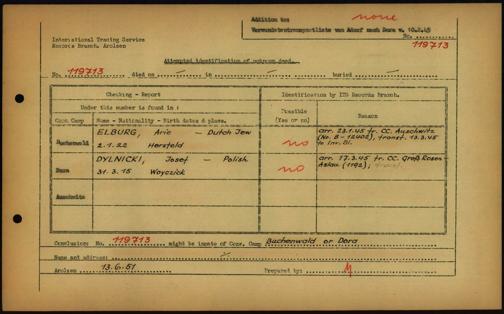 Addition to: none
Vernumstetransportliste von Alauf nach Dora v. 10.2.45
No. 119713
International Tracing Service
Records Branch, Arolsen
Attempted identification of unknown dead.
No. 119713 died on — in — buried —
Checking - Report
Identification by ITS Records Branch.
Under this number is found in :
Possible (Yes or no)
Reason
Conc. Camp
Name - Nationality - Birth dates & place.
Buchenwald
ELBURG, Arie — Dutch Jew
2.1.22 Hersfeld
no
arr. 23.1.45 fr. CC. Auschwitz
(No. B - 12402), transf. 13.3.45
to Inv. Bl.
Dora
DYLNICKI, Josef — Polish
31.3.15 Woyczick
no
arr. 17.3.45 fr. CC. Groß Rosen -
Aslau (1192),
Auschwitz
Conclusion: No. 119713 might be inmate of Conc. Camp Buchenwald or Dora
Name and address:
Arolsen 13.6.51
Prepared by: